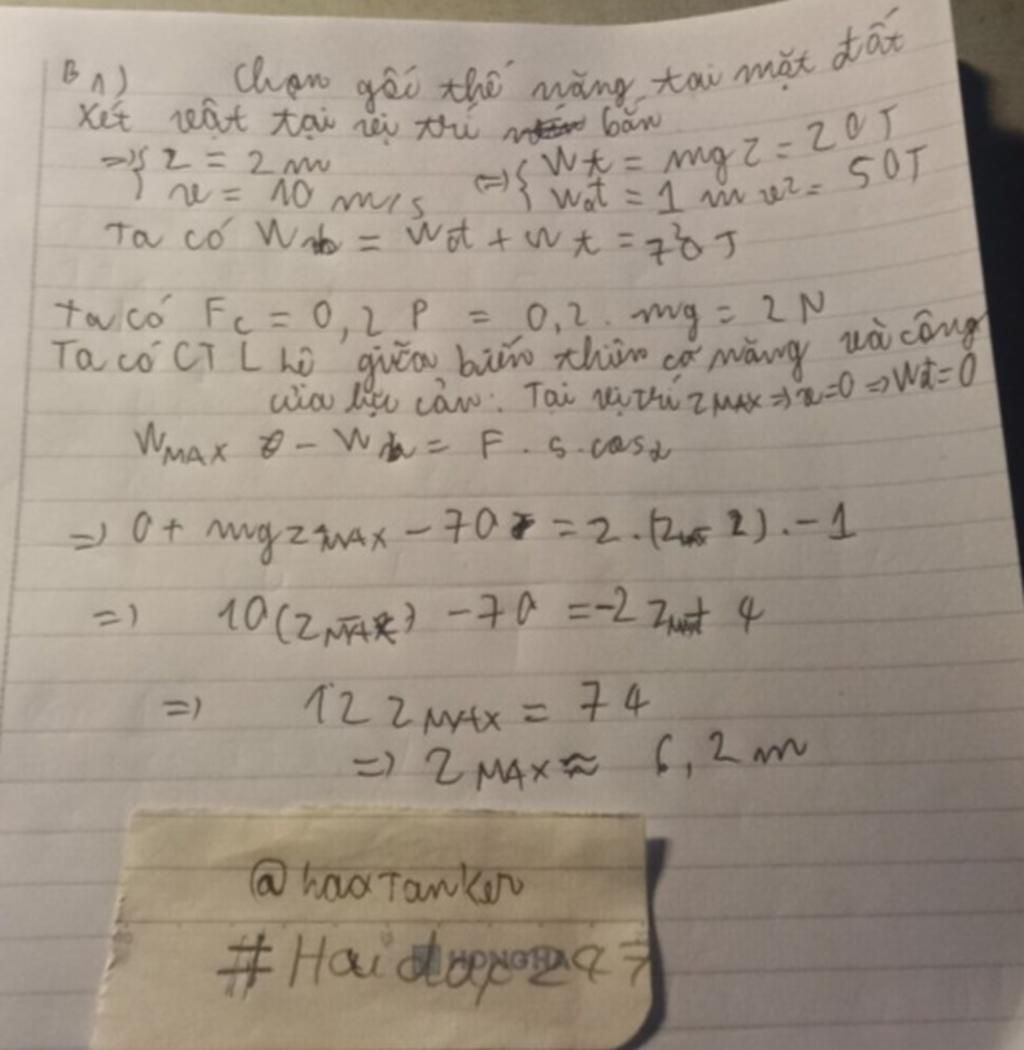 B1) Chọn gốc thế năng tại mặt đất
Xét vật tại vị trí bắn
=>{ z = 2 m
v = 10 m/s
<=>{ Wt = mgz = 20J
Wđ = 1 m v² = 50J
Ta có Wb = Wđ + Wt = 70 J
Ta có Fc = 0,2 P = 0,2. mg = 2 N
Ta có CT L hệ giữa biến thiên cơ năng và công
của lực cản: Tại vị trí zMAX => v=0 => Wđ=0
WMAX - Wb = F . s . cosα
=> 0 + mgzMAX - 70 = 2.(zMAX - 2) . -1
=> 10(zMAX) - 70 = -2zMAX + 4
=> 12 zMAX = 74
=> zMAX ≈ 6,2 m
@haoTanker
#Haidap247
HONGHA